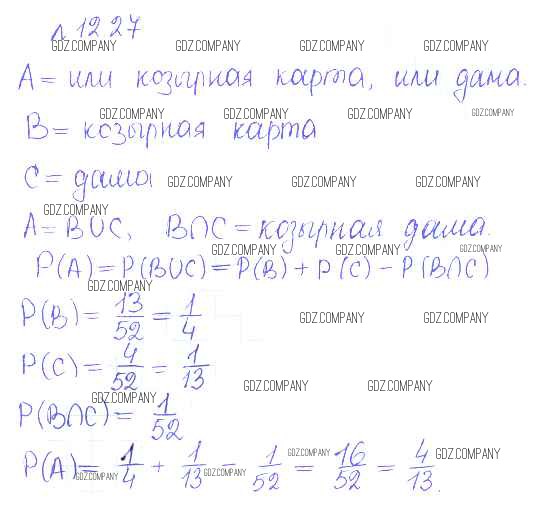 л 12.27
GDZ.COMPANY GDZ.COMPANY GDZ.COMPANY GDZ.COMPANY
A = или козырная карта, или дама.
GDZ.COMPANY GDZ.COMPANY GDZ.COMPANY GDZ.COMPANY
B = козырная карта
C = дама GDZ.COMPANY GDZ.COMPANY GDZ.COMPANY
GDZ.COMPANY
A = B∪C, B∩C = козырная дама.
GDZ.COMPANY GDZ.COMPANY GDZ.COMPANY
P(A) = P(B∪C) = P(B) + P(C) - P(B∩C)
GDZ.COMPANY
P(B) = 13/52 = 1/4 GDZ.COMPANY GDZ.COMPANY
P(C) = 4/52 = 1/13 GDZ.COMPANY GDZ.COMPANY
GDZ.COMPANY
P(B∩C) = 1/52
P(A) = 1/4 + 1/13 - 1/52 = 16/52 = 4/13.
GDZ.COMPANY GDZ.COMPANY GDZ.COMPANY GDZ.COMPANY